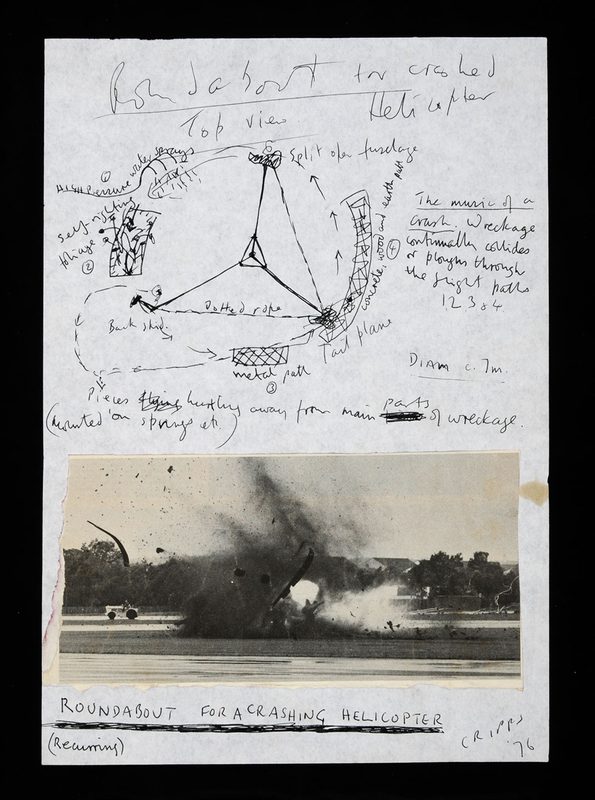 Roundabout for crashed
Helicopter
Top view.
① HIGH Pressure water sprays
Split open fuselage
self righting
foliage ②
concrete, wood and earth path ④
The music of a
crash. Wreckage
continually collides
or ploughs through
the flight paths
1 2 3 or 4
Dotted rope
Back skid.
Tail plane
metal path
③
DIAM c. 7m.
Pieces hurtling away from main parts of wreckage.
(mounted on springs etc.)
ROUNDABOUT FOR A CRASHING HELICOPTER
(Recurring)
CRIPPS
'76